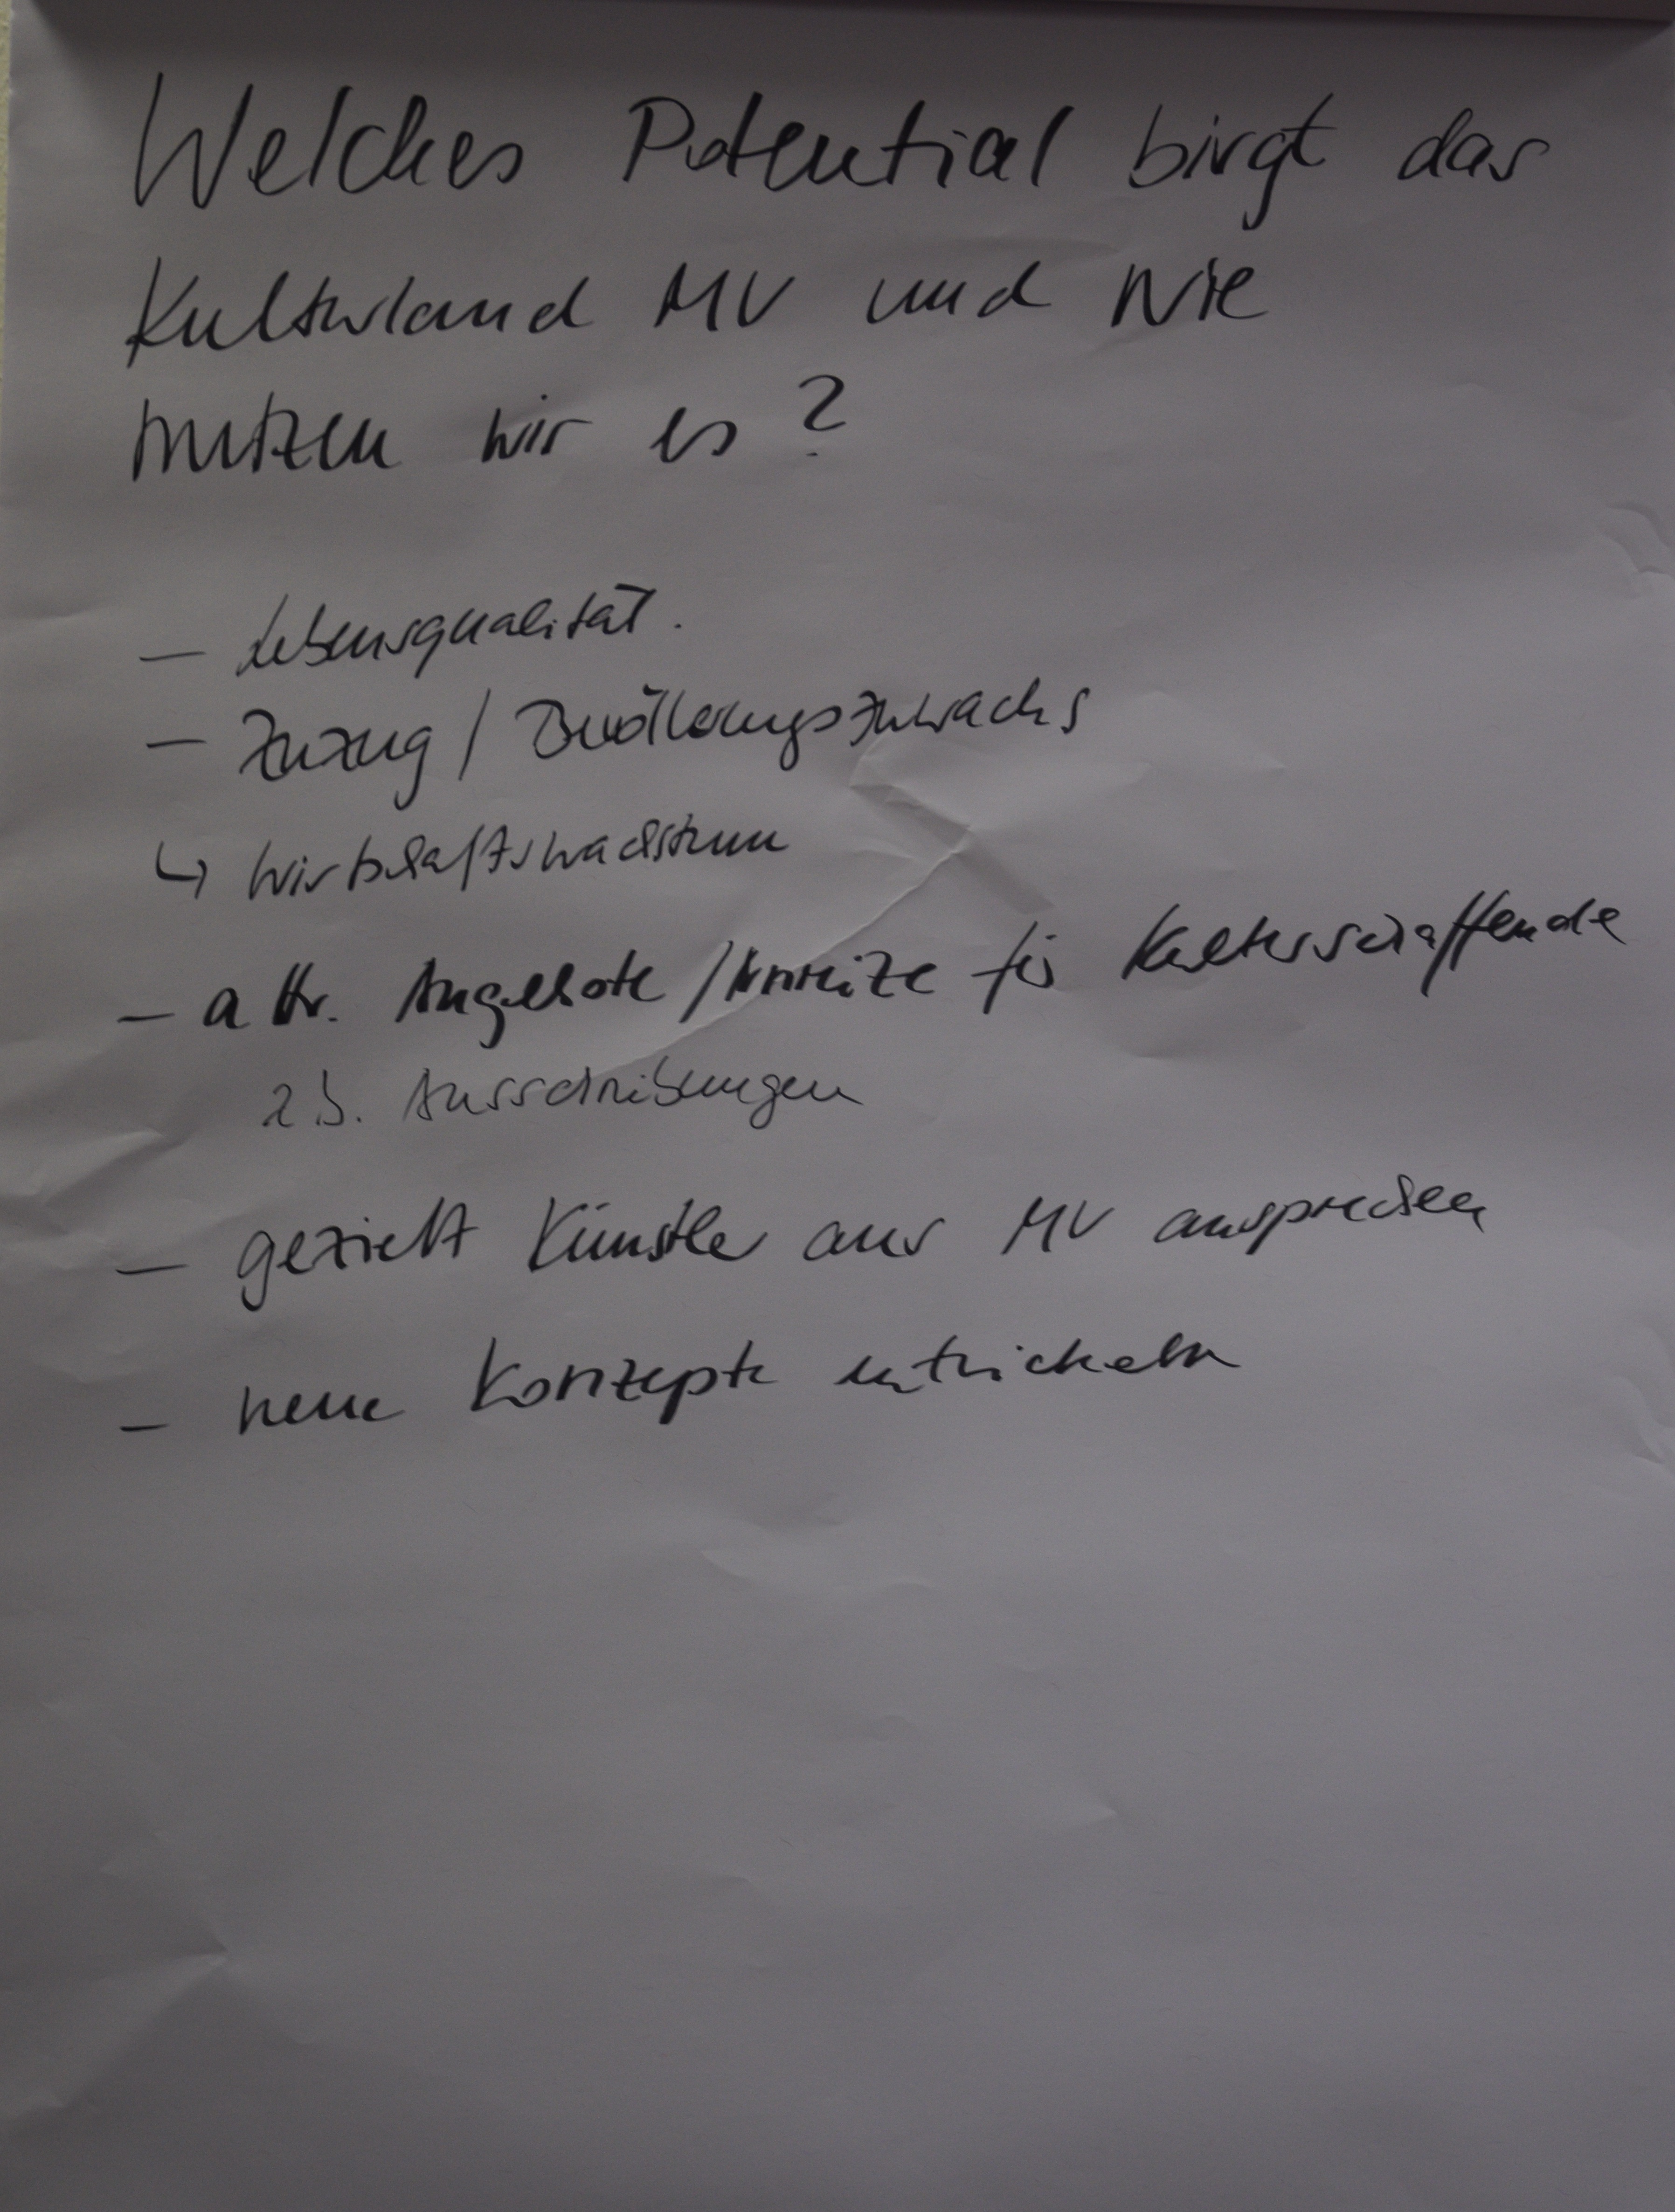 Welches Potential birgt das
Kulturland MV und wie
nutzen wir es?
– Lebensqualität.
– Zuzug / Bevölkerungszuwachs
↳ Wirtschaftswachstum
– attr. Angebote / Anreize für Kulturschaffende
z B. Ausschreibungen
– gezielt Künstler aus MV ansprechen
– neue Konzepte entwickeln